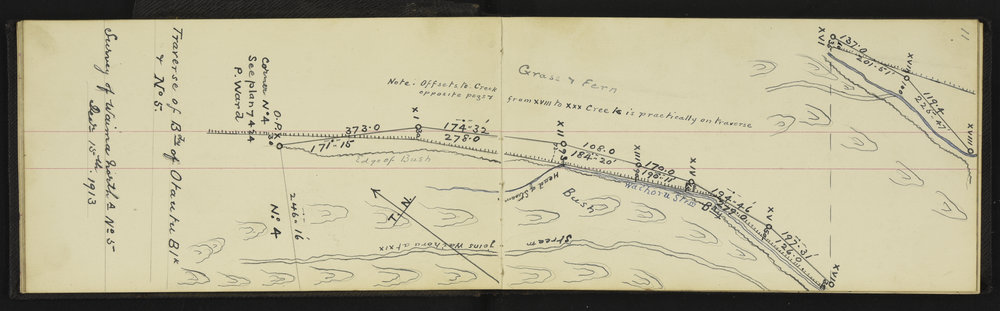 Survey of Waima North A No 5
Decr 15th 1913
Traverse of Bdy of Otautu Blk
& No 5.
Corner No 4
See plan 7424
P. Ward
O.P.
No 4
246°-16'
373.0
171°-15'
Edge of Bush
XI
174°-32'
278.0
Note: Offsets to Creek
opposite pegs &
from XVIII to XXX Creek is practically on traverse
Grass & Fern
T. N.
Stream
joins Waihoru at XIX
XII
Head of Stream
108.0
184°-20'
Bush
XIII
170.0
198°-11'
Waihoru Strm Bdy
XIV
279.0
XV
197°-31'
126.0
XVI
XVI
137.0
201°-51'
XVII
119.4
225°-47'
XVIII
11